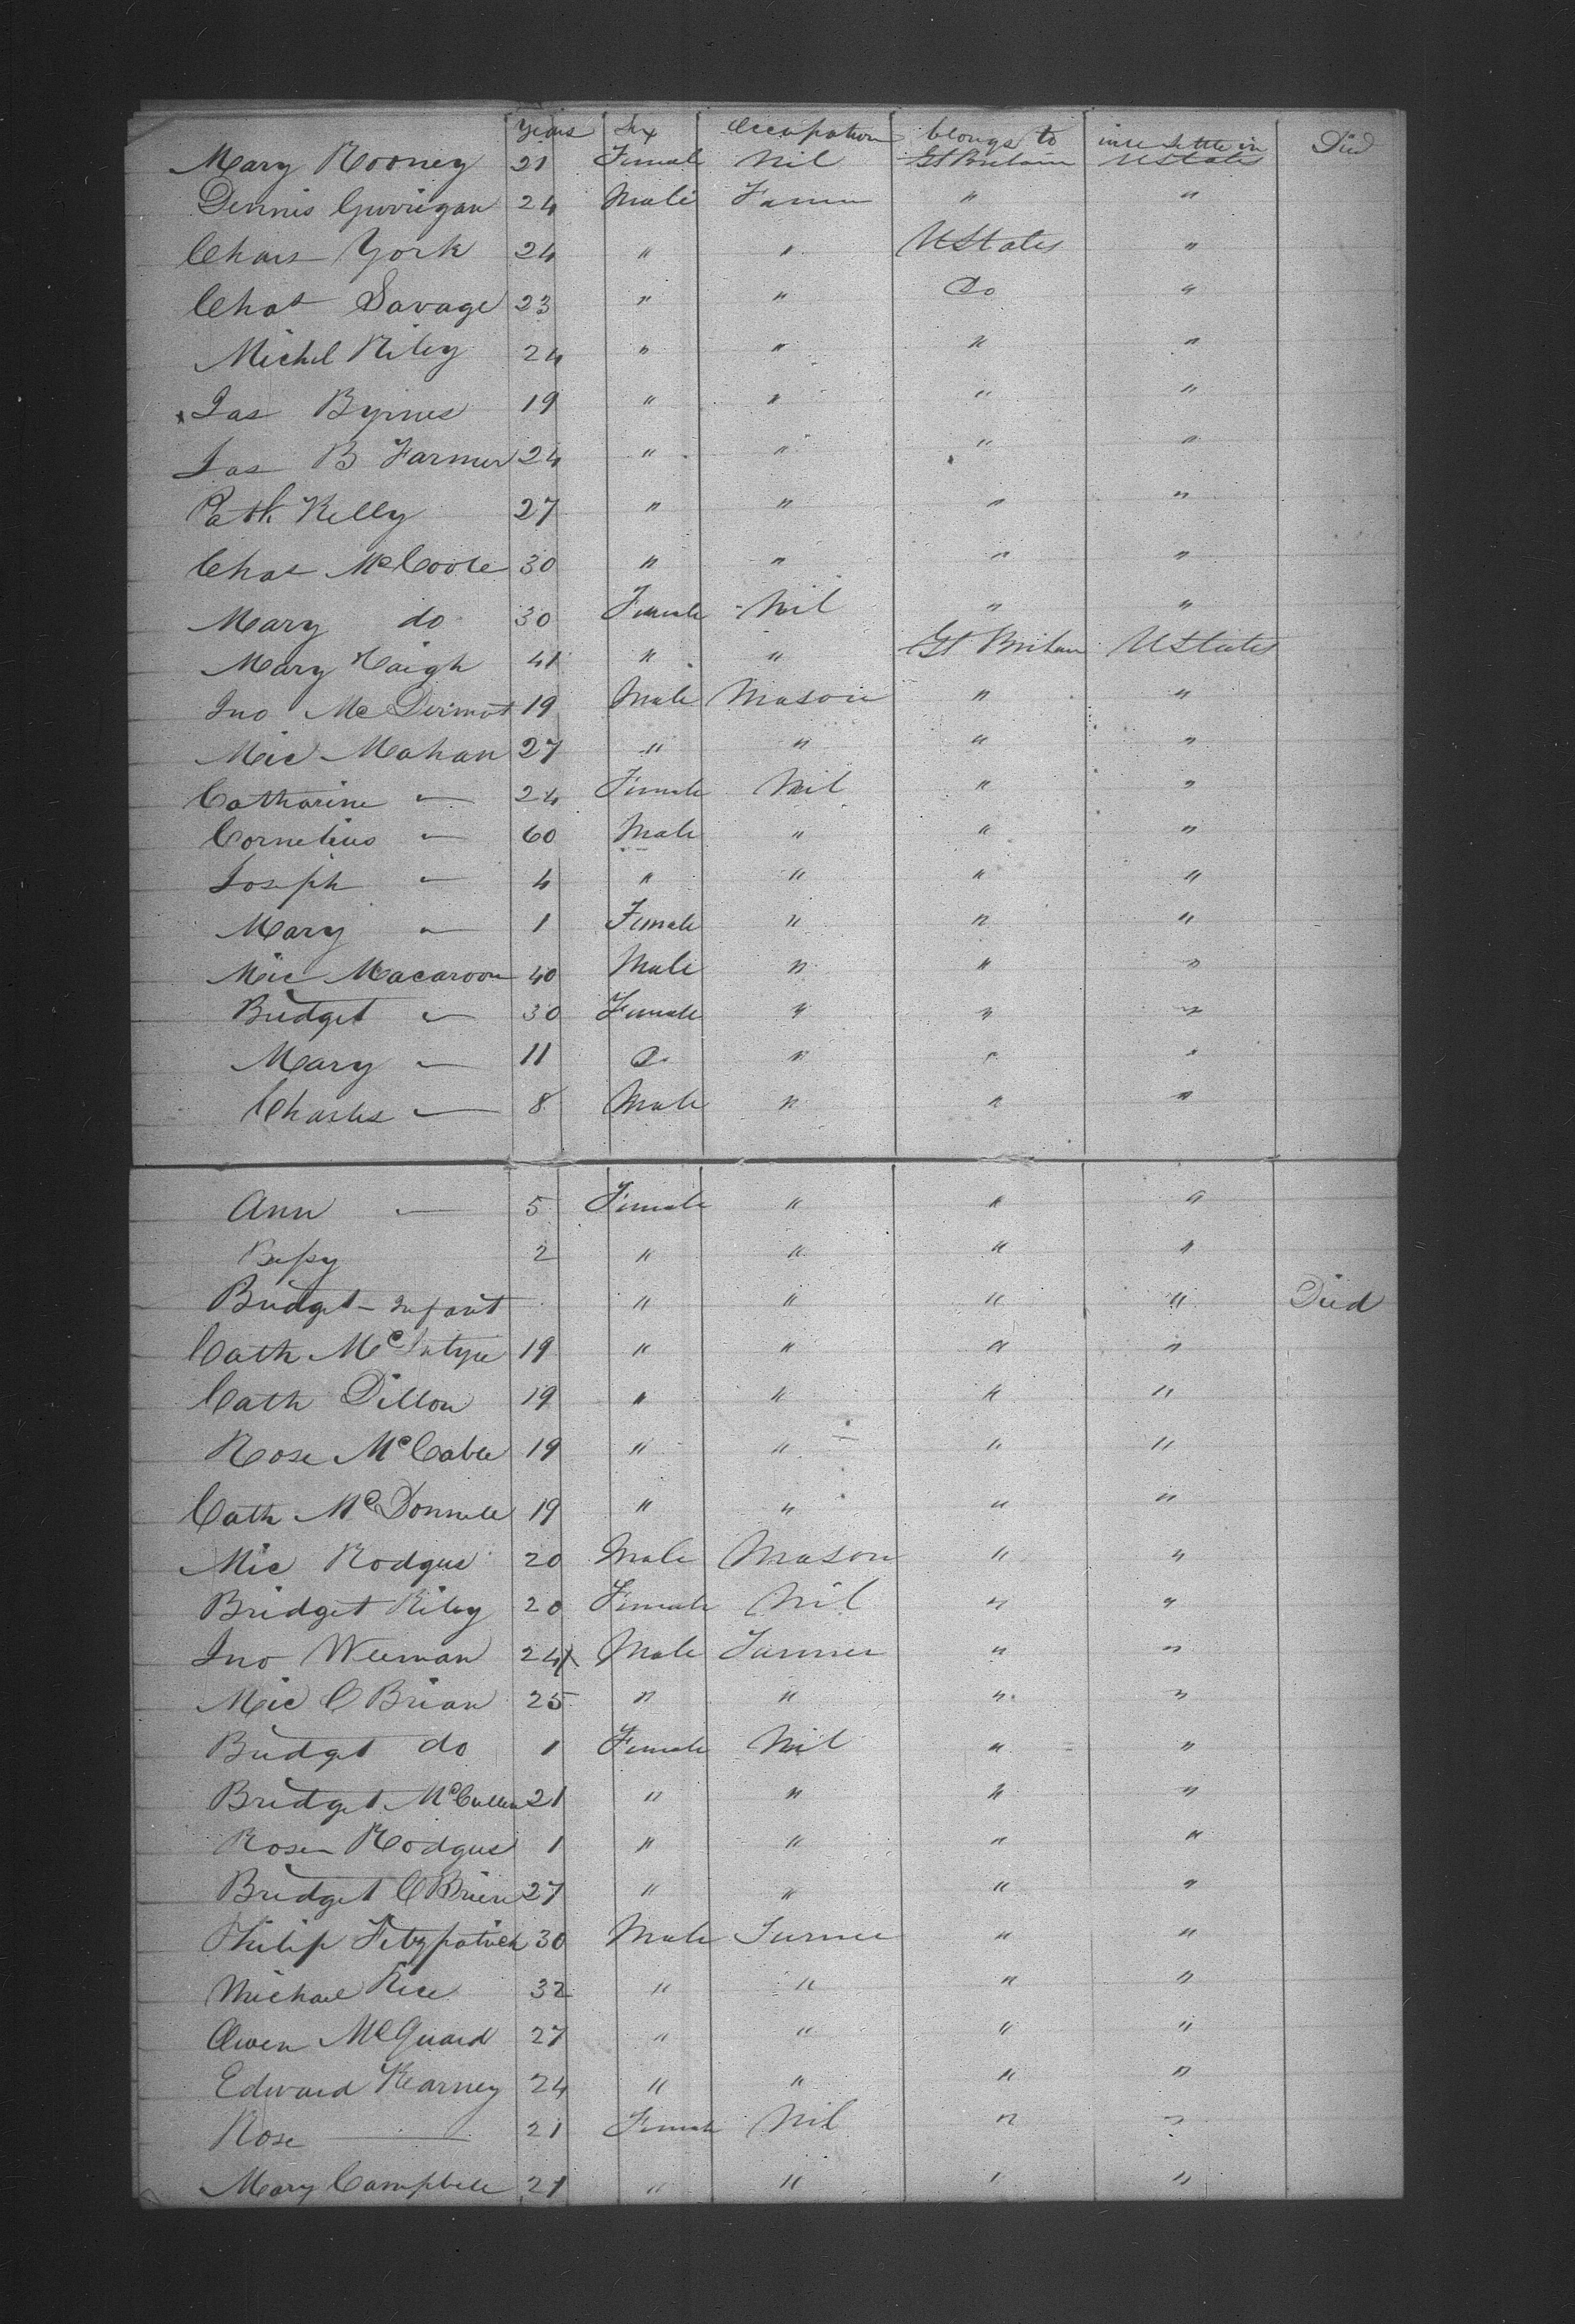 Years Sex Occupation belongs to intd settle in Died
Mary Rooney 21 Female Nil Gt Britain UStates
Dennis Gurrigan 24 Male Farmer " "
Chars York 24 " " UStates "
Chas Savage 23 " " Do "
Michel Riley 24 " " " "
Jas Byrnes 19 " " " "
Jas B Farmer 24 " " " "
Patk Kelly 27 " " " "
Chas McCoole 30 " " " "
Mary do 30 Female Nil " "
Mary Haigh 41 " " Gt Britain UStates
Jno McDermot 19 Male Mason " "
Mic Mahan 27 " " " "
Catharine " 24 Female Nil " "
Cornelius " 60 Male " " "
Joseph " 4 " " " "
Mary " 1 Female " " "
Mic Macaroon 40 Male " " "
Bridget " 30 Female " " "
Mary " 11 Do " " "
Charles — 8 Male " " "
Ann — 5 Female " " "
Bessy 2 " " " "
Bridget - Infant " " " " Died
Cath McIntyre 19 " " " "
Cath Dillon 19 " " " "
Rose McCabe 19 " " " "
Cath McDonnell 19 " " " "
Mic Rodgers 20 Male Mason " "
Bridget Riley 20 Female Nil " "
Jno Weeman 24 Male Farmer " "
Mic O Brian 25 " " " "
Bridget do 1 Female Nil " "
Bridget McCullen 21 " " " "
Rosen Rodgers 1 " " " "
Bridget O Brien 27 " " " "
Philip Fitzpatrick 30 Male Farmer " "
Michael Rice 32 " " " "
Owen McQuaid 27 " " " "
Edward Kearney 24 " " " "
Rose — 21 Female Nil " "
Mary Campbell 21 " " " "